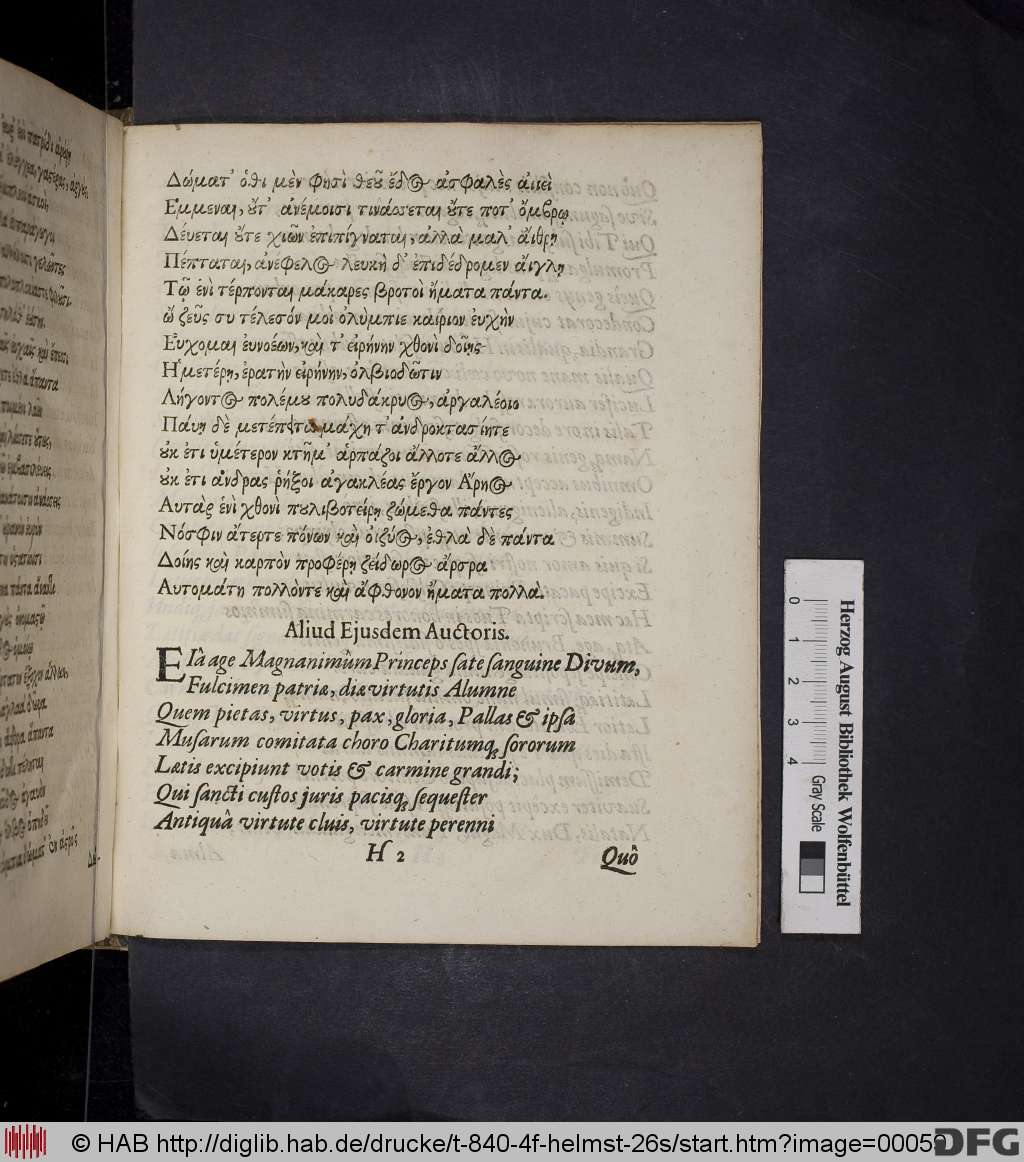 Δώματ' ὅθι μὲν φησὶ θεοῦ ἕδος ἀσφαλὲς ἀιεὶ
Εμμεναι, οὔτ' ἀνέμοισι τινάσσεται οὔτε ποτ' ὄμβρῳ
Δέυεται οὔτε χιῶν ἐπιπίγναται, ἀλλὰ μαλ' ἄιθρη
Πέπταται, ἀνέφελος λευκὴ δ' ἐπιδέδρομεν ἄιγλη
Τῷ ἐνὶ τέρπονται μάκαρες βροτοὶ ἤματα πάντα.
ὤ ζεῦς συ τέλεσόν μοὶ ὀλύμπιε καίριον ἐυχὴν
Ευχομαι ἐυνοέων, καὶ τ' ἐιρήνην χθονὶ δοίης
Ημετέρῃ, ἐρατὴν ἐιρήνην, ὀλβιοδῶτιν
Λήγοντος πολέμου πολυδάκρυος, ἀργαλέοιο
Πάυῃ δὲ μάχη τ' ἀνδροκτασίητε
οὐκ ἐτι ὑμέτερον κτῆμ' ἁρπάζοι ἄλλοτε ἄλλος
οὐκ ἐτι ἄνδρας ῥήξοι ἀγακλέας ἔργον Ἄρηος
Αυτὰς ἐνὶ χθονὶ πουλιβοτείρῃ ζώμεθα πάντες
Νόσφιν ἄτερτε πόνων καὶ ὀιζύος, ἐθλὰ δὲ πάντα
Δοίης καὶ καρπὸν προφέρῃ ζείδωρος ἄρσρα
Αυτομάτη πολλόντε καὶ ἄφθονον ἤματα πολλὰ.
Aliud Ejusdem Auctoris.
EIâ age Magnanimûm Princeps sate sanguine Divum,
Fulcimen patriæ, diæ virtutis Alumne
Quem pietas, virtus, pax, gloria, Pallas & ipsa
Musarum comitata choro Charitumq; sororum
Lætis excipiunt votis & carmine grandi;
Qui sancti custos juris pacisq; sequester
Antiquâ virtute cluis, virtute perenni
H 2
Quô
Herzog August Bibliothek Wolfenbüttel
0 1 2 3 4
Gray Scale
© HAB http://diglib.hab.de/drucke/t-840-4f-helmst-26s/start.htm?image=00059
DFG